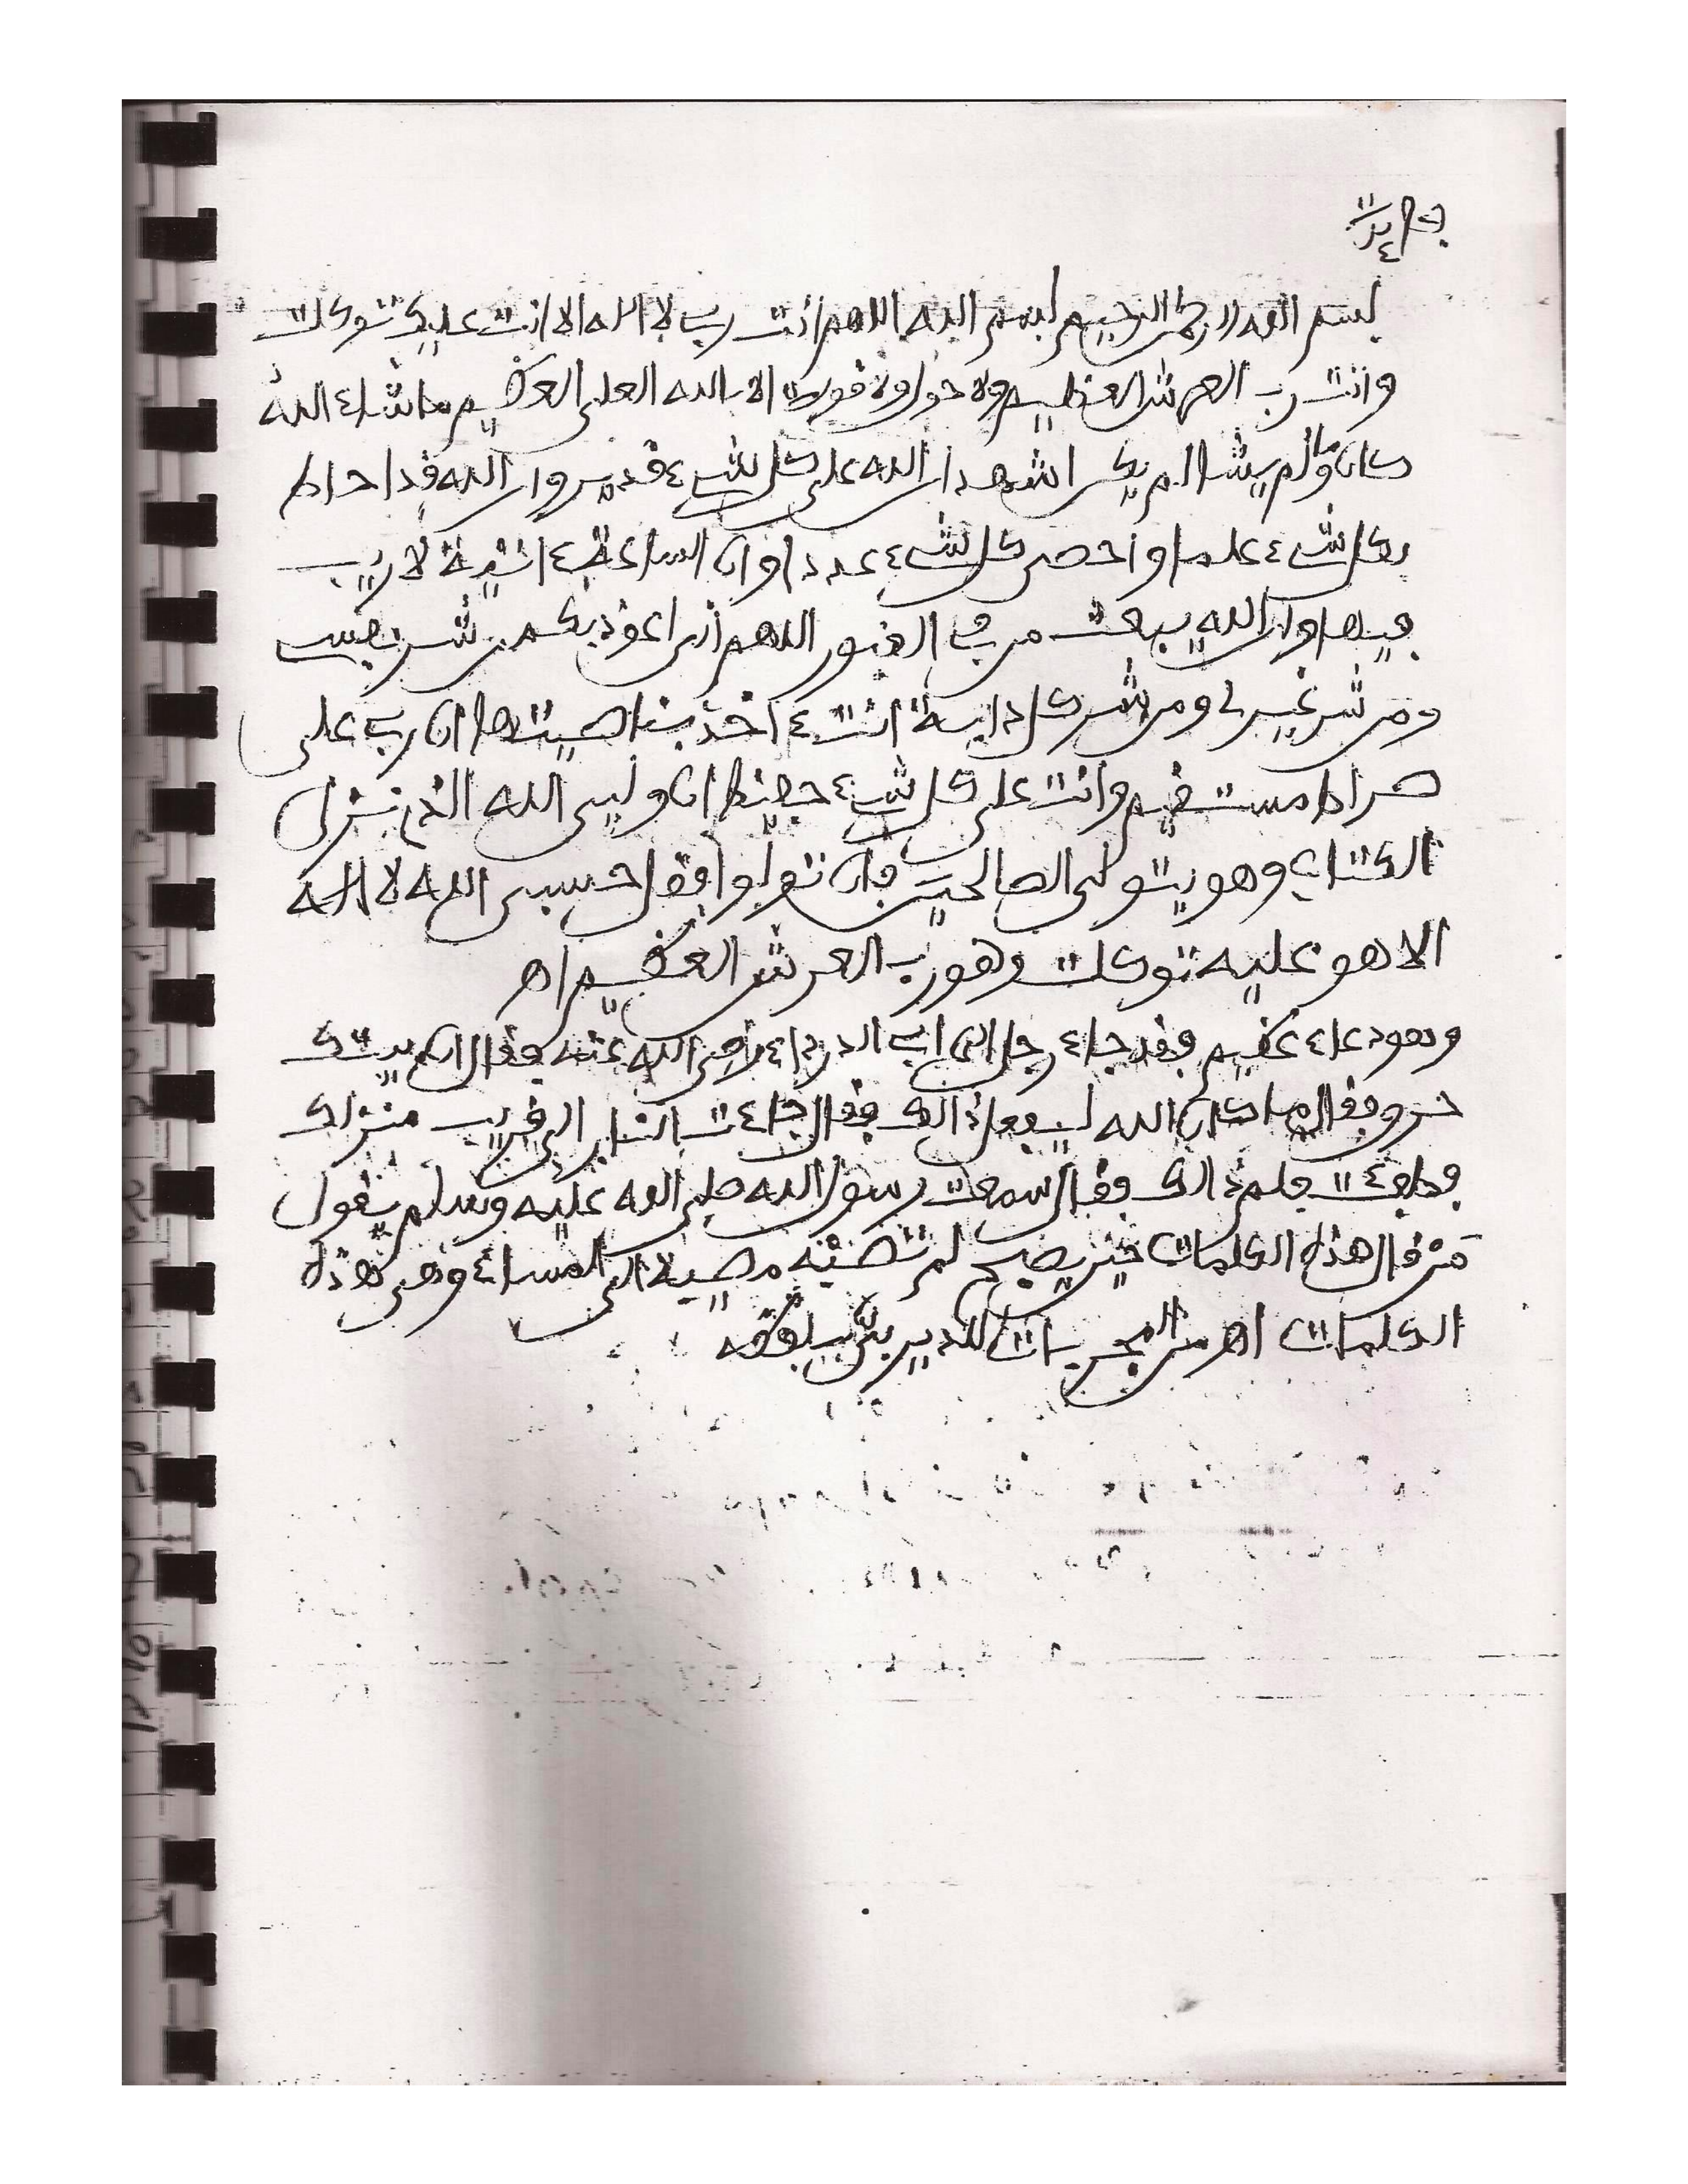 بسم الله الرحمن الرحيم بسم الله اللهم أنت رب لا اله الا انت عليك توكلت
وانت رب العرش العظيم ولا حول ولا قوة الا بالله العلى العظيم ما شاء الله
كان وما لم يشا لم يكن اشهد ان الله على كل شيء قدير وان الله قد احاط
بكل شيء علما واحصى كل شيء عددا وان الساعة ءاتية لا ريب
فيها وان الله يبعث من في القبور اللهم انى اعوذ بك من شر نفسى
ومن شر غيرى ومن شر كل دابة انت ءاخذ بناصيتها ان رب على
صراط مستقيم وانت على كل شيء حفيظ ان وليى الله الذى نزل
الكتاب وهو يتولى الصالحين فان تولوا فقل حسبى الله لا اله
الا هو عليه توكلت وهو رب العرش العظيم اه
وهو دعاء عظيم فقد جاء رجل الى ابى الدرداء رضى الله عنه فقال ان بيتك
حرق فقال ما كان الله ليفعل ذالك فقال جاءت النار الى قريب منزلك
فطفئت فلم ذالك فقال سمعت رسول الله صلى الله عليه وسلم يقول
من قال هذه الكلمات حين يصبح لم تصبه مصيبة الى المساء وهى هذه
الكلمات اه من المجربات للديربى